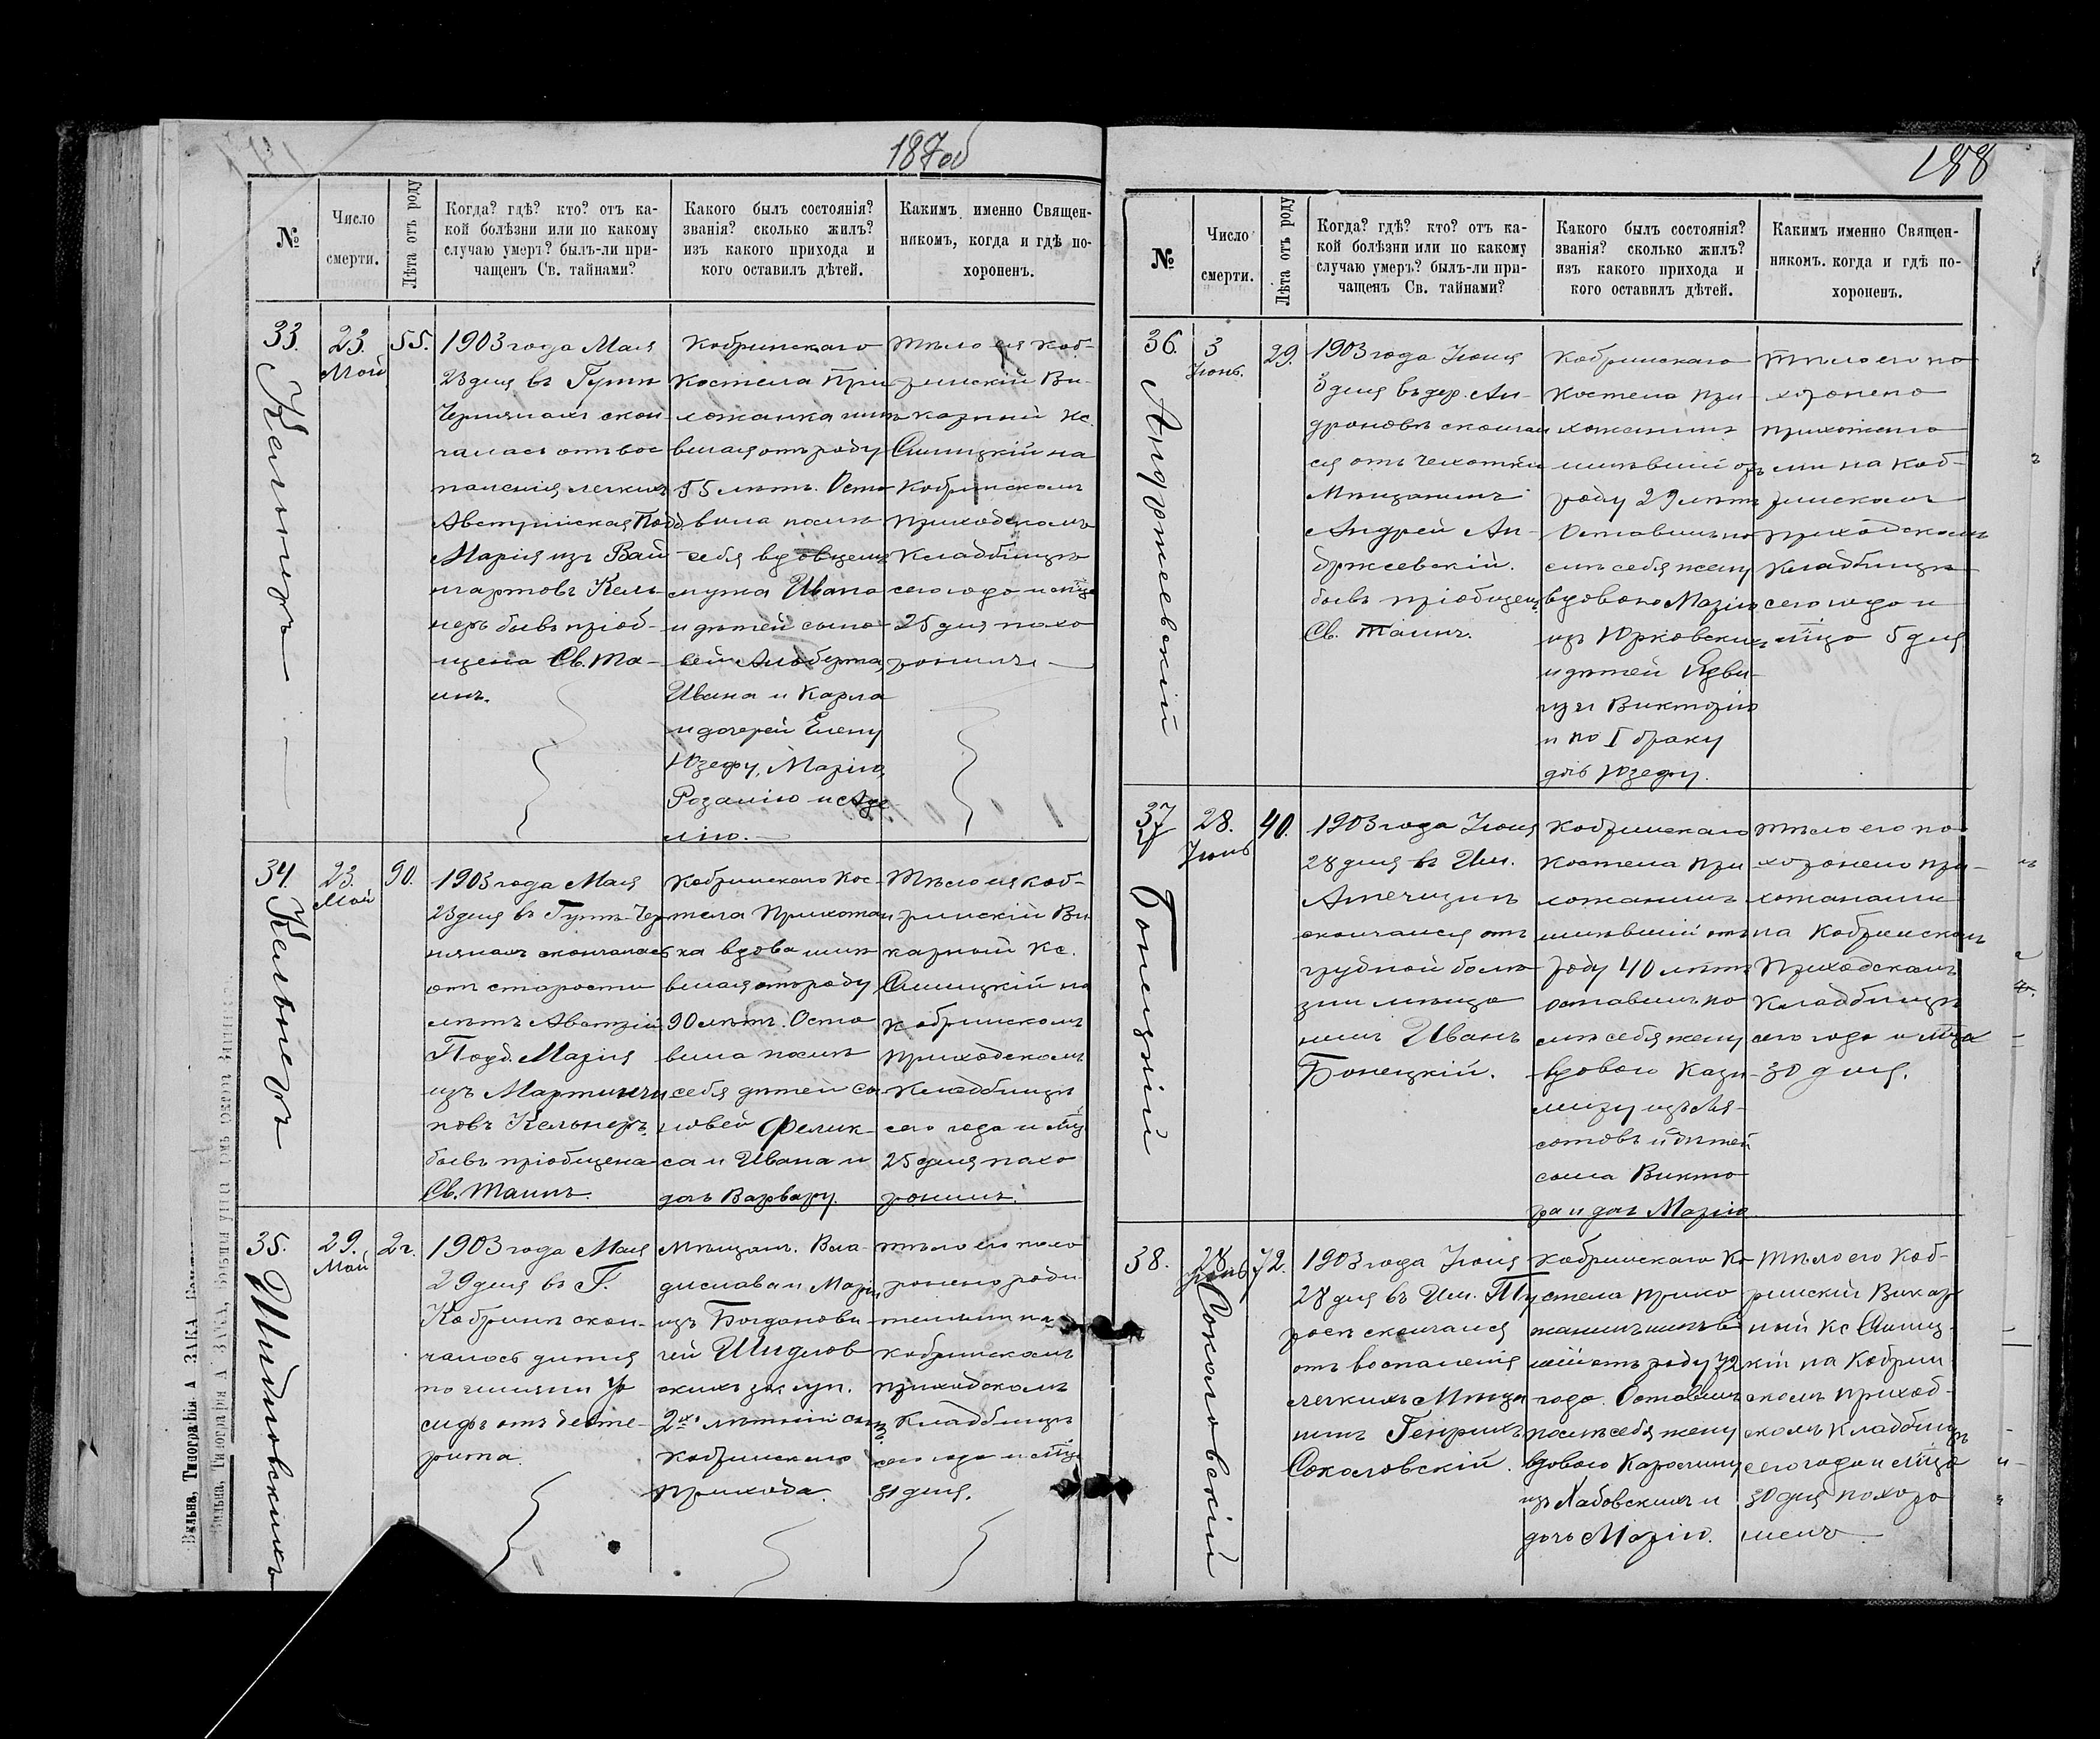 187об
№
Число
смерти.
Лѣта отъ роду
Когда? гдѣ? кто? отъ ка-
кой болѣзни или по какому
случаю умеръ? былъ-ли при-
чащенъ Св. тайнами?
Какого былъ состоянія?
званія? сколько жилъ?
изъ какого прихода и
кого оставилъ дѣтей.
Какимъ именно Священ-
никомъ, когда и гдѣ по-
хороненъ.
33.
Кельнеръ
23.
Май
55.
1903 года Мая
23 дня въ Гутѣ
Чернянахъ скон
чалась отъ вос
паленія легкихъ
Австрійская Подд.
Марія изъ Вай
гартовъ Кель
неръ бывъ пріоб-
щена Св. Та-
инъ.
Кобринскаго
Костела При
хожанка жи
вшая отъ роду
55 лѣтъ. Оста
вила послѣ
себя вдовцемъ
мужа Ивана
и дѣтей сыно
вей Альберта
Ивана и Карла
и дочерей Елену
Юзефу, Марію
Розалію и Аде
лію.
Тѣло ея Коб-
ринскій Ви-
карный Кс.
на
Кобринскомъ
приходскомъ
Кладбищѣ
сего года и мца
25 дня похо
ронилъ.
34.
Кельнеръ
23.
Май
90.
1903 года Мая
23 дня въ Гутѣ-Чер
нянахъ скончалась
отъ старости
лѣтъ Австрій.
Подд. Марія
изъ Мартинчи
ковъ Кельнеръ,
бывъ пріобщена
Св. Таинъ.
Кобринскаго Кос-
тела Прихожан
ка вдова жи
вшая отъ роду
90 лѣтъ. Оста
вила послѣ
себя дѣтей сы
новей Фелик-
са и Ивана и
дочь Варвару.
Тѣло ея Коб-
ринскій Ви
карный Кс.
на
Кобринскомъ
приходскомъ
Кладбищѣ
сего года и мца
25 дня похо
ронилъ.
35.
Шидловскихъ
29.
Май
2 г.
1903 года Мая
29 дня въ Г.
Кобринѣ скон-
чалось дитя
по имени Ю
сифъ отъ дефте-
рита.
Мѣщан. Вла-
дислава и Маріи
изъ Богданови-
чей Шидлов
скихъ зак. суп.
2хъ лѣтній сынъ.
Кобринскаго
прихода.
Тѣло его похо
ронено роди
телями на
Кобринскомъ
приходскомъ
Кладбищѣ
сего года и мца
31 дня.
Вильна, Типографія А. ЗАКА
188
№
Число
смерти.
Лѣта отъ роду
Когда? гдѣ? кто? отъ ка-
кой болѣзни или по какому
случаю умеръ? былъ-ли при-
чащенъ Св. тайнами?
Какого былъ состоянія?
званія? сколько жилъ?
изъ какого прихода и
кого оставилъ дѣтей.
Какимъ именно Священ-
никомъ. когда и гдѣ по-
хороненъ.
36.
Андржеевскій
3
Іюнь.
29.
1903 года Іюня
3 дня въ дер. Ан-
дроновѣ скончал
ся отъ чахотки
Мѣщанинъ
Андрей Ан-
држеевскій.
бывъ пріобщенъ
Св. Таинъ.
Кобринскаго
Костела При-
хожанинъ
жившій отъ
роду 29 лѣтъ
Оставилъ по
слѣ себя жену
вдовою Марію
изъ Юрковскихъ
и дѣтей Ядви-
гу и Викторію
и по I браку
дочь Юзефу.
Тѣло его по
хоронено
прихожана
ми на Коб-
ринскомъ
приходскомъ
Кладбищѣ
сего года и
мца 5 дня
37
Бонецкій
28.
Іюнь
40.
1903 года Іюня
28 дня въ Им.
скончался отъ
грудной болѣ
зни мѣща
нинъ Иванъ
Бонецкій.
Кобринскаго
Костела При
хожанинъ
жившій отъ
роду 40 лѣтъ
оставилъ по
слѣ себя жену
вдовою Кази
миру изъ Ля-
сотовъ и дѣтей
сына Викто
ра и дочь Марію
Тѣло его по
хоронено при-
хожанами
на Кобринскомъ
Приходскомъ
Кладбищѣ
сего года и мца
30 дня.
38.
Соколовскій
28
Іюнь
72.
1903 года Іюня
28 дня въ Им.
скончался
отъ воспаленія
легкихъ Мѣща
нинъ Генрихъ
Соколовскій.
Кобринскаго Ко
стела прихо
жанинъ живъ
шій отъ роду 72
года. Оставилъ
послѣ себя жену
вдовою Каролину
изъ Хабовскихъ и
дочь Марію.
Тѣло его Коб-
ринскій Викар
ный Кс
на Кобрин
скомъ приход-
скомъ Кладбищѣ
сего года и мца
30 дня похоро
нилъ